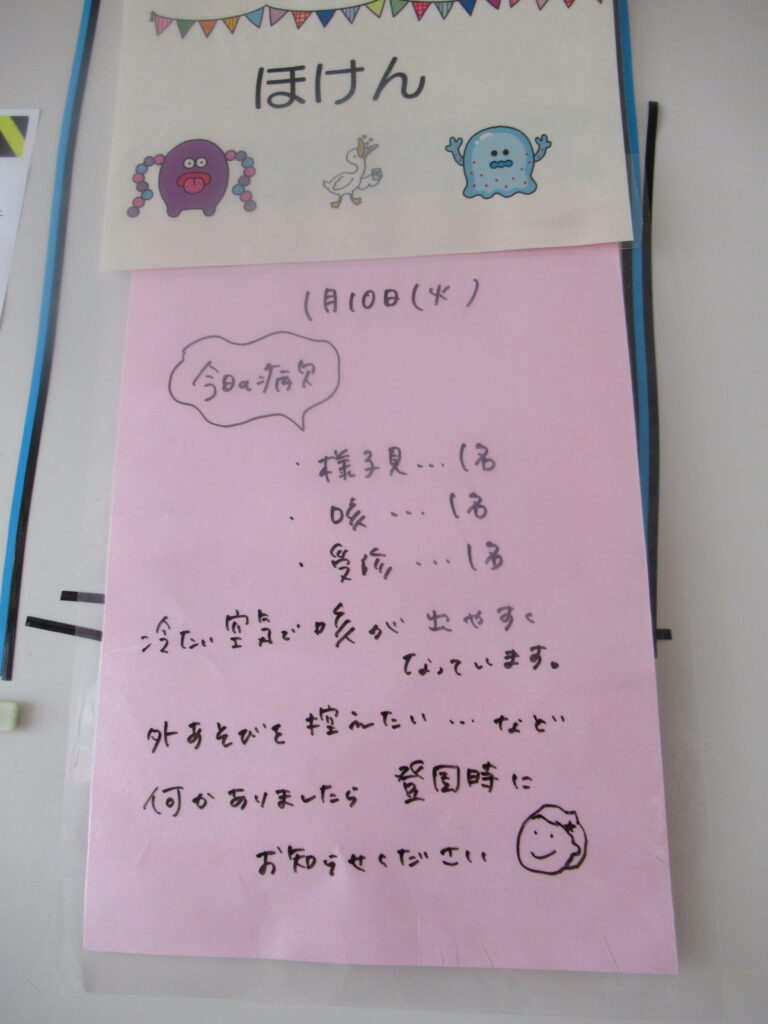 ほけん
1月10日(火)
今日の病欠
・様子見…1名
・咳…1名
・受診…1名
冷たい空気で咳が出やすく
なっています。
外あそびを控えたい…など
何かありましたら登園時に
お知らせください